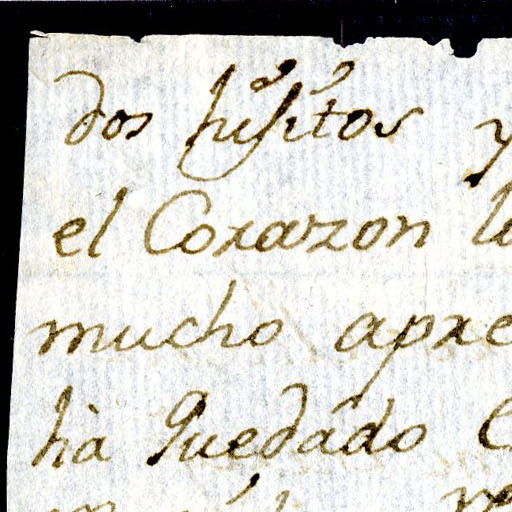 dos hijitos y
el Corazon l
mucho apre
ha Quedado